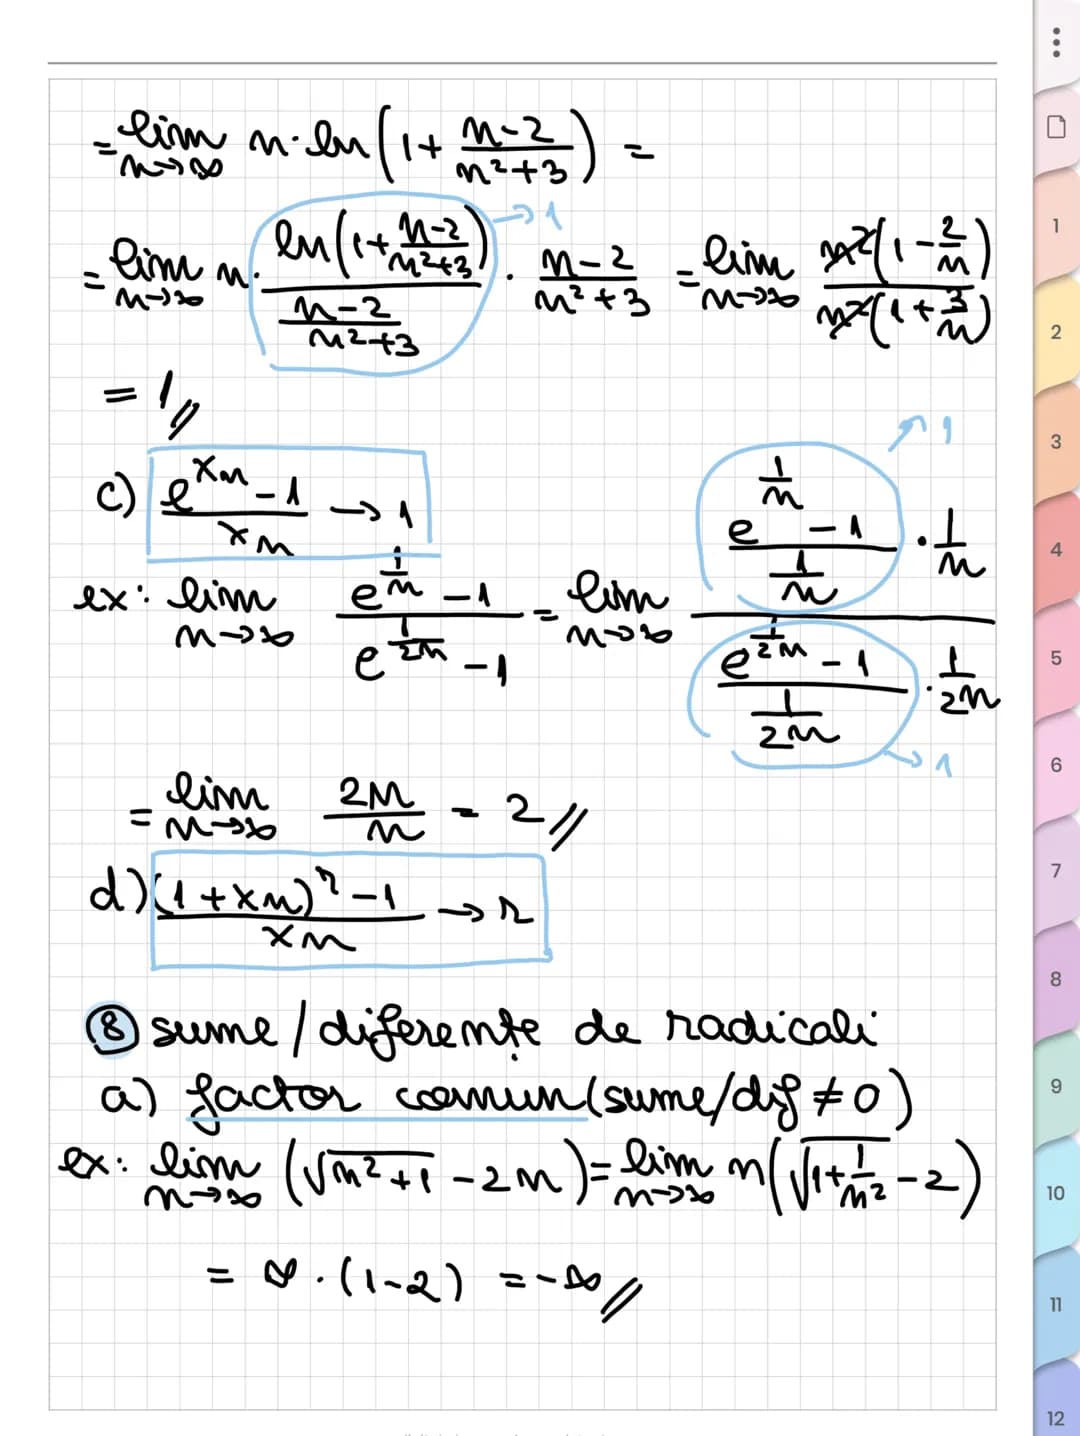 = lim n→∞ n·ln(1 + (n-2)/(n²+3)) =
= lim n→∞ n · ln(1 + (n-2)/(n²+3)) / ((n-2)/(n²+3)) → 1 · (n-2)/(n²+3) = lim n→∞ n²(1 - 2/n) / n²(1 + 3/n)
= 1 //
c) (e^(xn) - 1)/xn → 1
ex: lim n→∞ (e^(1/n) - 1)/(e^(1/2n) - 1) = lim n→∞ ((e^(1/n) - 1)/(1/n) · 1/n) / ((e^(1/2n) - 1)/(1/2n) · 1/2n) → 1 → 1
= lim n→∞ 2n/n = 2 //
d) ((1 + xn)^r - 1)/xn → r
⑧ sume/diferențe de radicali
a) factor comun (sume/dif ≠ 0)
ex: lim n→∞ (√(n²+1) - 2n) = lim n→∞ n(√(1 + 1/n²) - 2)
= ∞ · (1-2) = -∞ //
1
2
3
4
5
6
7
8
9
10
11
12